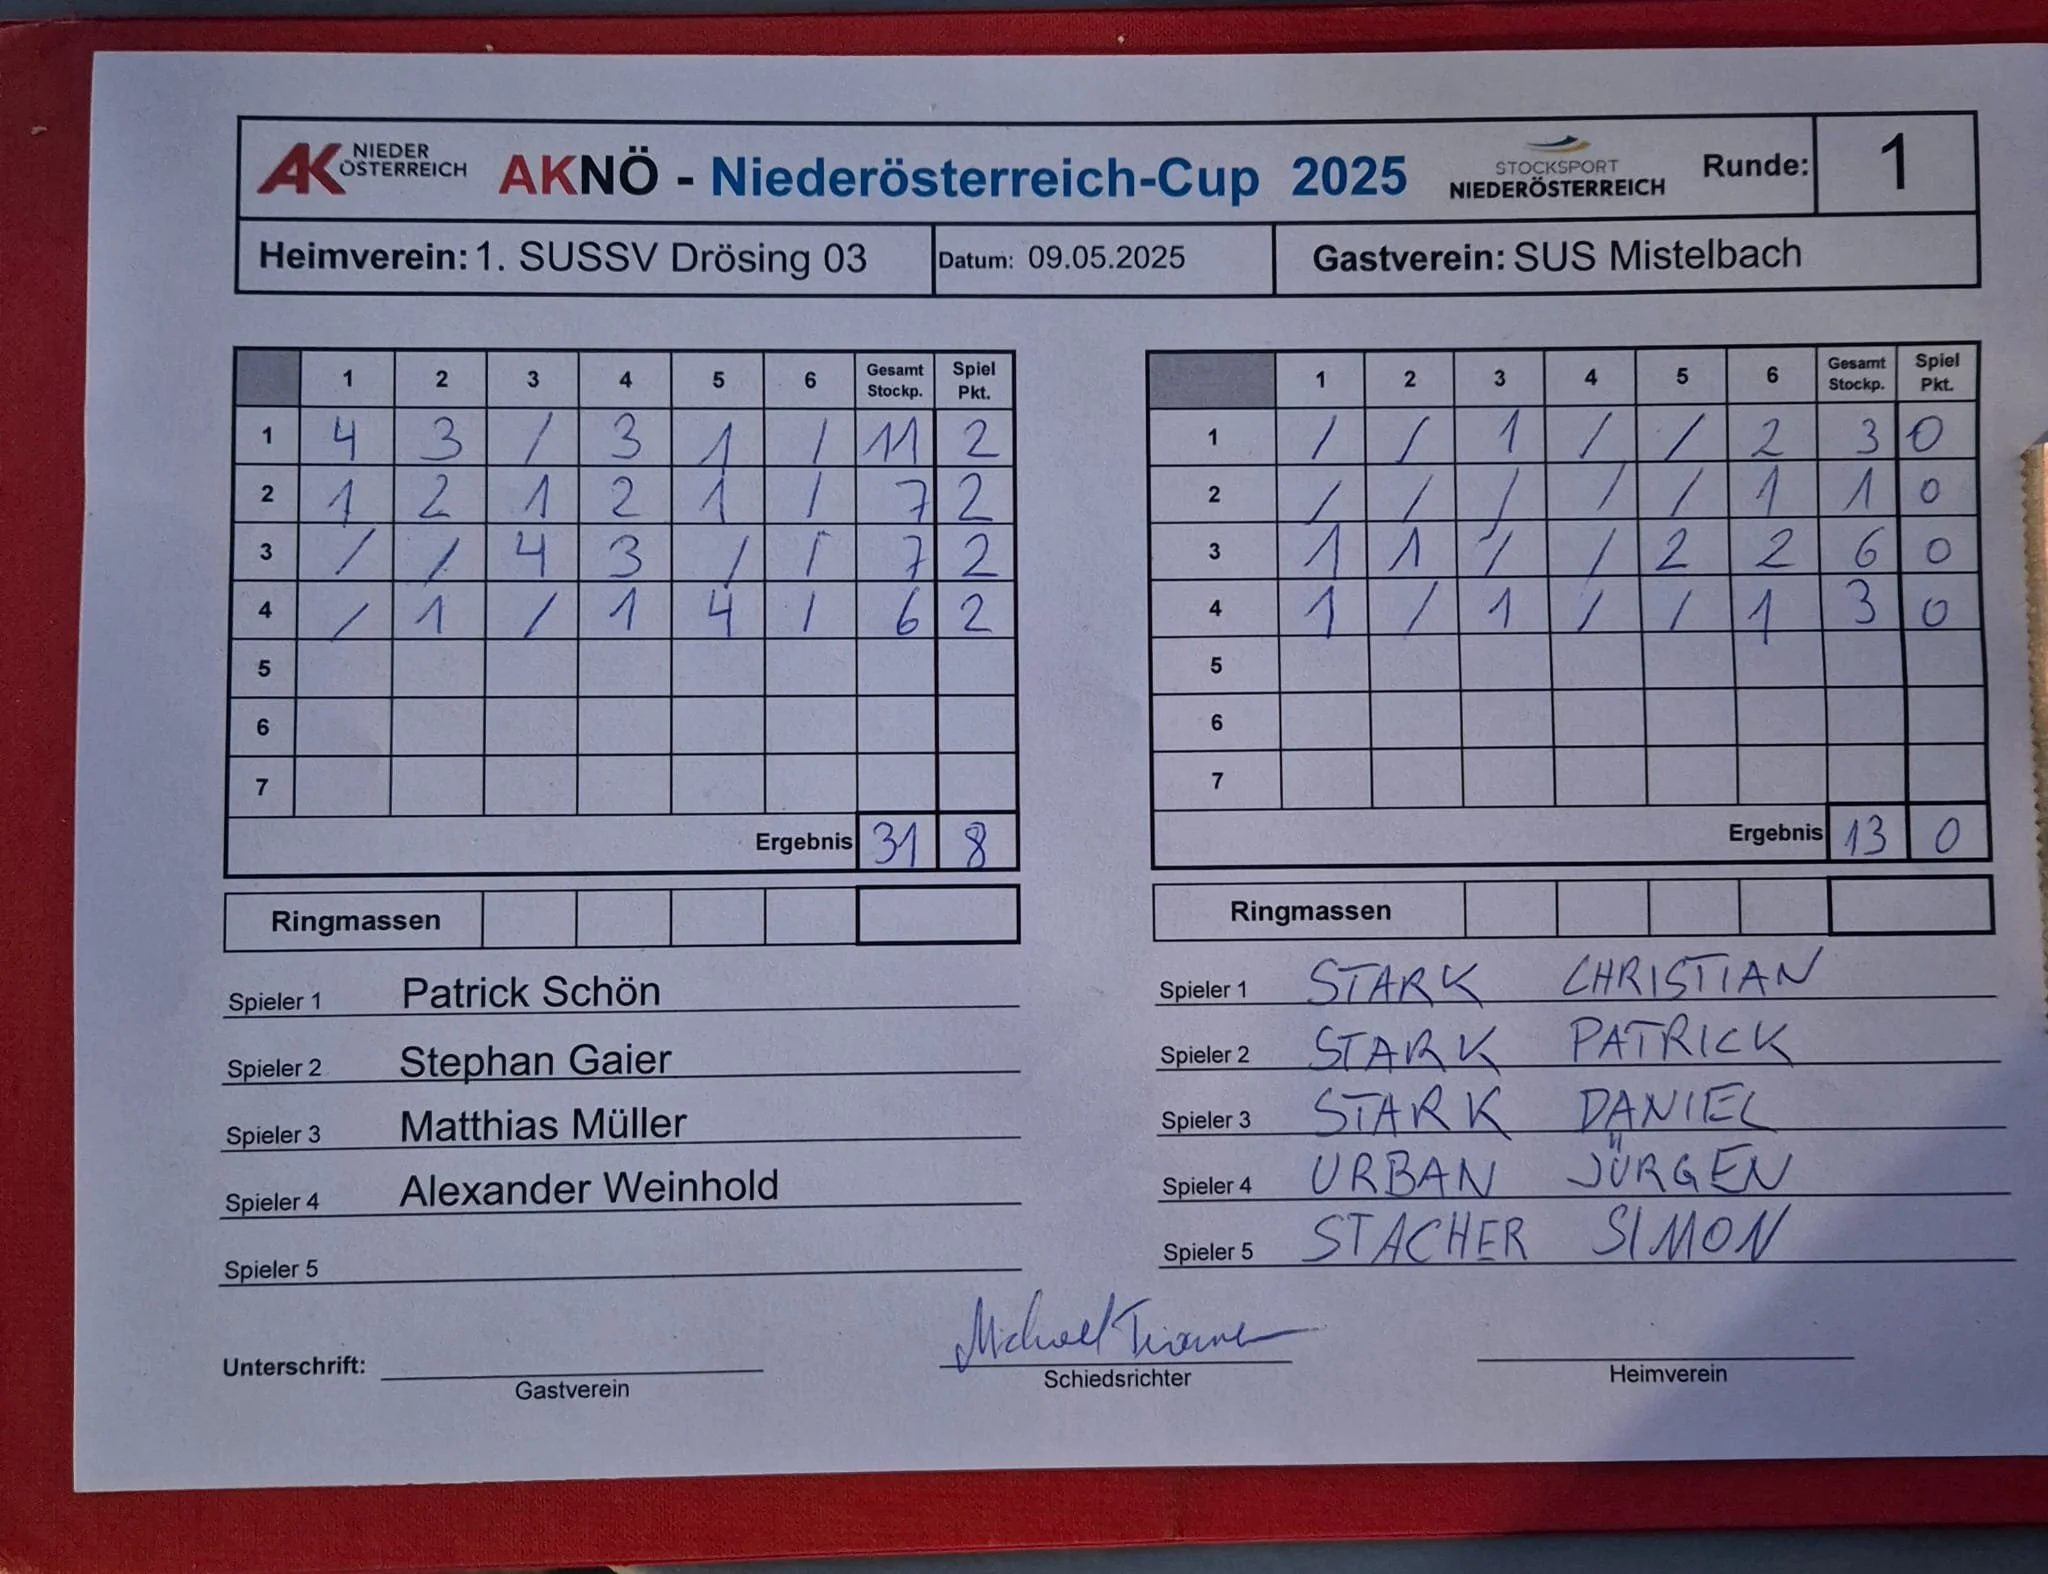 AK NIEDER ÖSTERREICH AKNÖ - Niederösterreich-Cup 2025 STOCKSPORT NIEDERÖSTERREICH Runde: 1
Heimverein: 1. SUSSV Drösing 03 Datum: 09.05.2025 Gastverein: SUS Mistelbach
1 2 3 4 5 6 Gesamt Stockp. Spiel Pkt.
1 4 3 / 3 1 / 11 2
2 1 2 1 2 1 / 7 2
3 / / 4 3 / / 7 2
4 / 1 / 1 4 / 6 2
5
6
7
Ergebnis 31 8
Ringmassen
Spieler 1 Patrick Schön
Spieler 2 Stephan Gaier
Spieler 3 Matthias Müller
Spieler 4 Alexander Weinhold
Spieler 5
1 2 3 4 5 6 Gesamt Stockp. Spiel Pkt.
1 / / 1 / / 2 3 0
2 / / / / / 1 1 0
3 1 1 / / 2 2 6 0
4 1 / 1 / / 1 3 0
5
6
7
Ergebnis 13 0
Ringmassen
Spieler 1 STARK CHRISTIAN
Spieler 2 STARK PATRICK
Spieler 3 STARK DANIEL
Spieler 4 URBAN JÜRGEN
Spieler 5 STACHER SIMON
Michael
Unterschrift:
Gastverein Schiedsrichter Heimverein